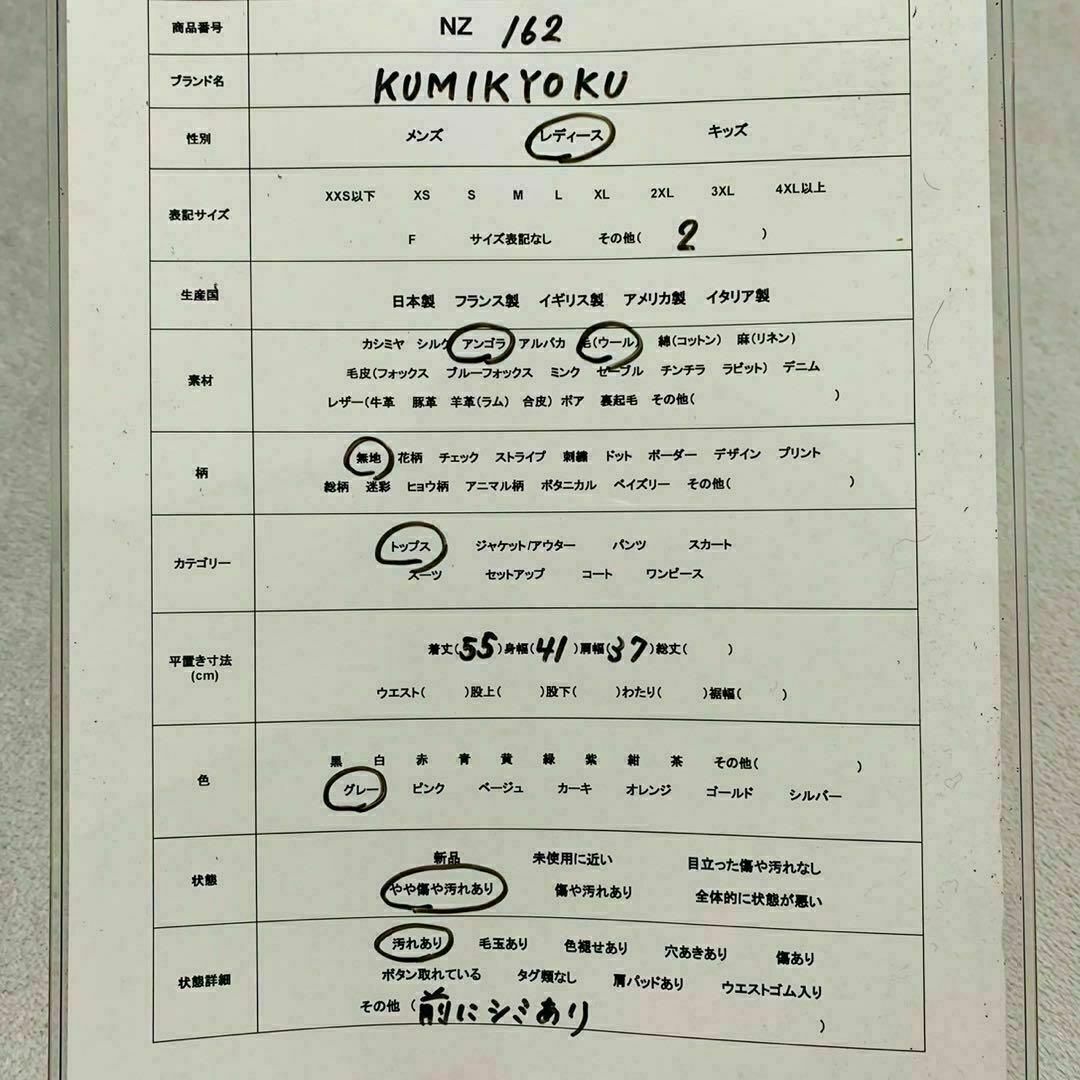 商品番号 NZ 162
ブランド名 KUMIKYOKU
性別 メンズ レディース キッズ
表記サイズ
XXS以下 XS S M L XL 2XL 3XL 4XL以上
F サイズ表記なし その他( 2 )
生産国 日本製 フランス製 イギリス製 アメリカ製 イタリア製
素材
カシミヤ シルク アンゴラ アルパカ 毛(ウール) 綿(コットン) 麻(リネン)
毛皮(フォックス ブルーフォックス ミンク セーブル チンチラ ラビット) デニム
レザー(牛革 豚革 羊革(ラム) 合皮) ボア 裏起毛 その他( )
柄
無地 花柄 チェック ストライプ 刺繍 ドット ボーダー デザイン プリント
総柄 迷彩 ヒョウ柄 アニマル柄 ボタニカル ペイズリー その他( )
カテゴリー
トップス ジャケット/アウター パンツ スカート
スーツ セットアップ コート ワンピース
平置き寸法
(cm)
着丈(55)身幅(41)肩幅(37)総丈( )
ウエスト( )股上( )股下( )わたり( )裾幅( )
色
黒 白 赤 青 黄 緑 紫 紺 茶 その他( )
グレー ピンク ベージュ カーキ オレンジ ゴールド シルバー
状態
新品 未使用に近い 目立った傷や汚れなし
やや傷や汚れあり 傷や汚れあり 全体的に状態が悪い
状態詳細
汚れあり 毛玉あり 色褪せあり 穴あきあり 傷あり
ボタン取れている タグ類なし 肩パッドあり ウエストゴム入り
その他 (前にシミあり )